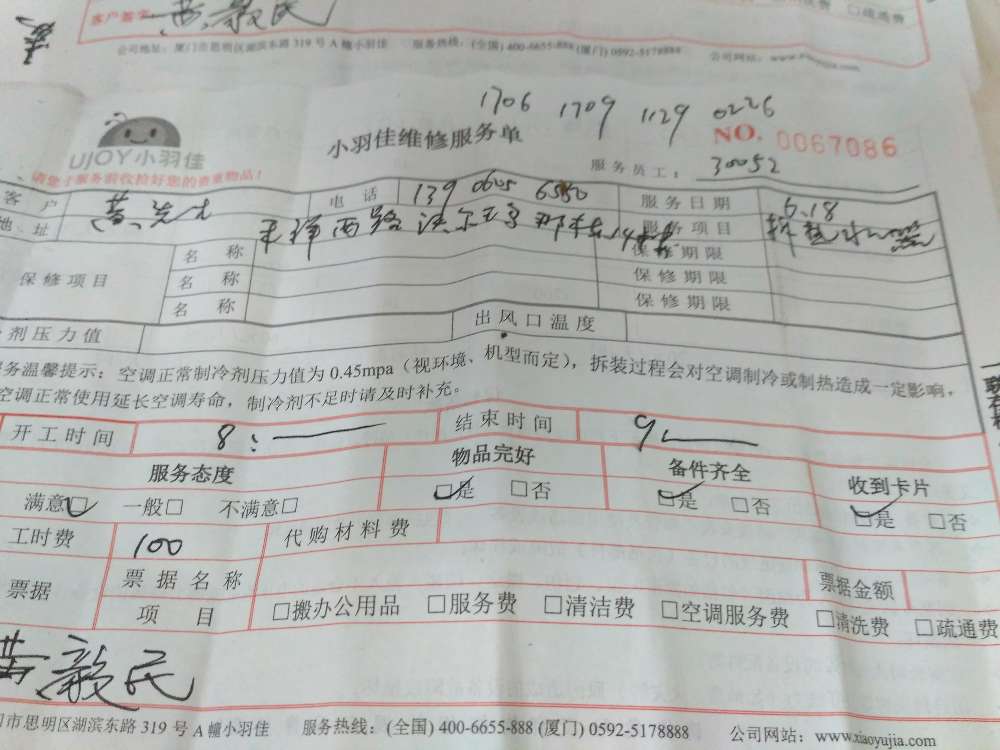 客户签字 黄毅民
□疏通费
公司地址：厦门市思明区湖滨东路 319 号 A 幢小羽佳 服务热线：(全国) 400-6655-888 (厦门) 0592-5178888 公司网站：www.xiaoyujia.com
1706 1709 1129 0226
UJOY小羽佳 小羽佳维修服务单 NO. 0067086
请您于服务前收拾好您的贵重物品！ 服务员工：30052
客户 黄先生 电话 139 0605 6550 服务日期 6.18
地址 西路 沃尔玛 服务项目 拆热水器
保修项目 名称 保修期限
名称 保修期限
名称 保修期限
剂压力值 出风口温度
务温馨提示：空调正常制冷剂压力值为 0.45mpa（视环境、机型而定），拆装过程会对空调制冷或制热造成一定影响，
空调正常使用延长空调寿命，制冷剂不足时请及时补充。
开工时间 8：— 结束时间 9 —
服务态度 物品完好 备件齐全 收到卡片
满意□ 一般□ 不满意□ □是 □否 □是 □否 □是 □否
工时费 100 代购材料费
票据 票据名称 票据金额
项目 □搬办公用品 □服务费 □清洁费 □空调服务费 □清洗费 □疏通费
黄毅民
门市思明区湖滨东路 319 号 A 幢小羽佳 服务热线：(全国) 400-6655-888 (厦门) 0592-5178888 公司网站：www.xiaoyujia.com